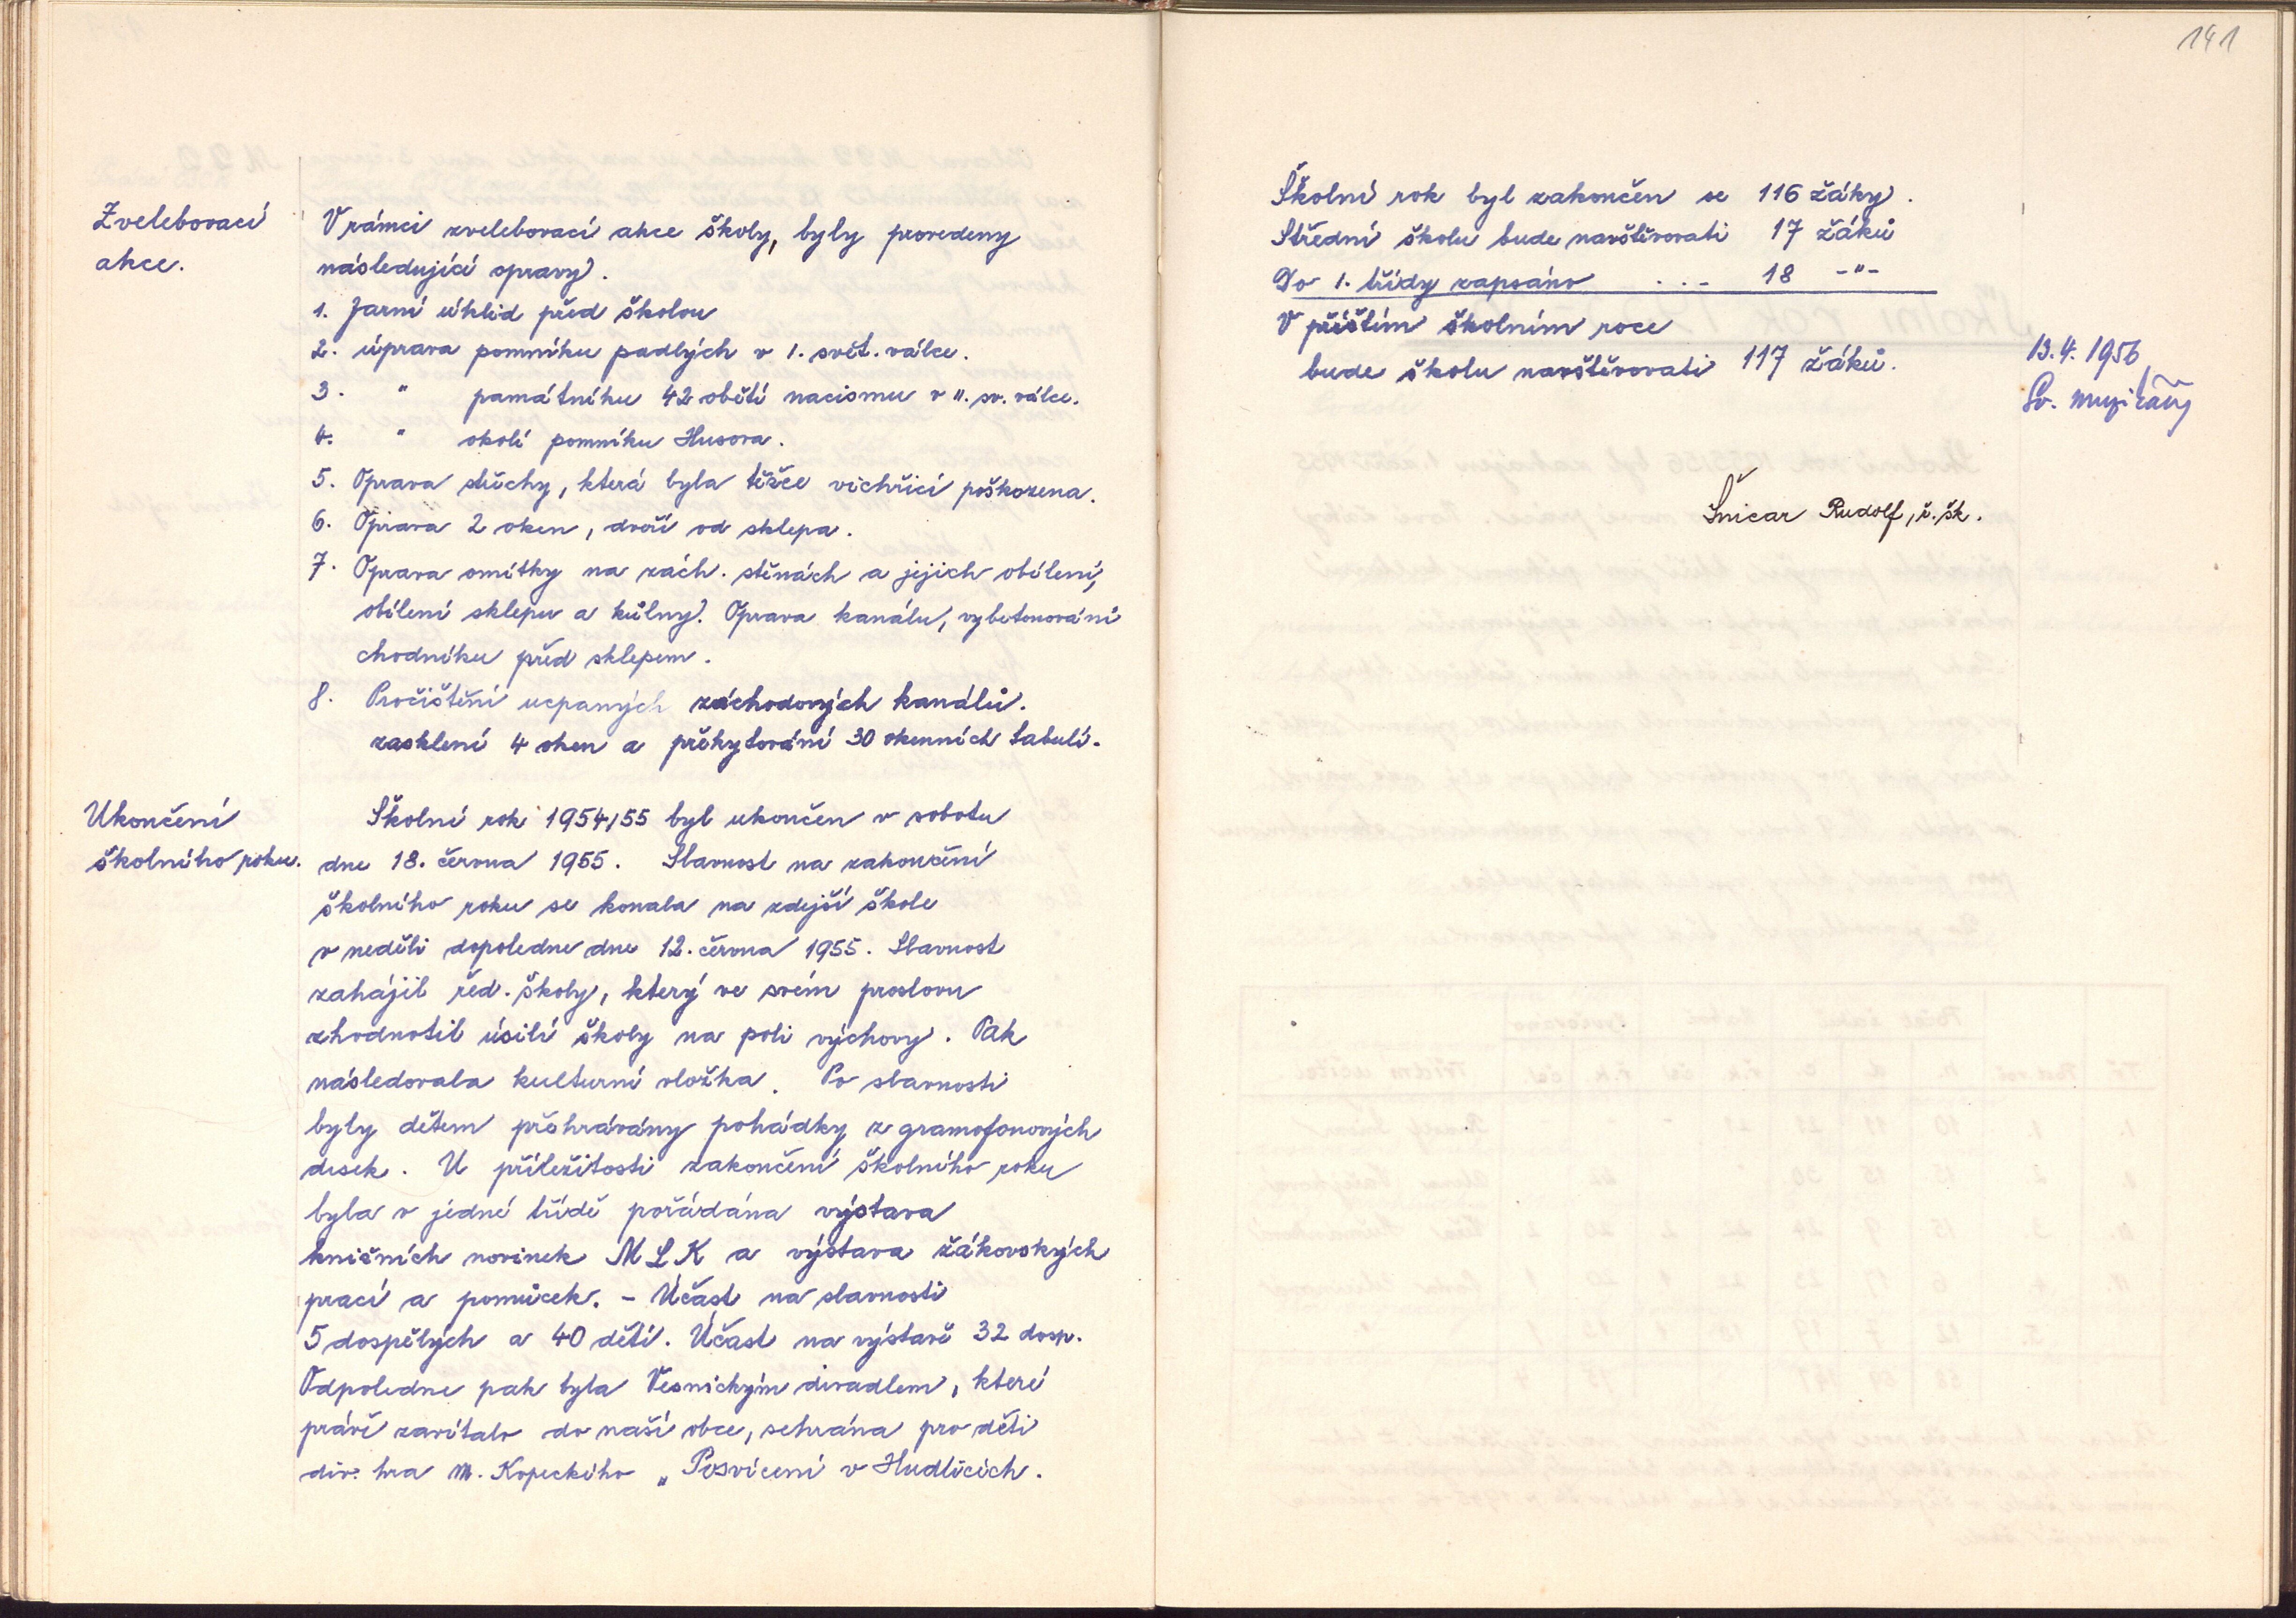 Zvelebovací
akce.
V rámci zvelebovací akce školy, byly provedeny
následující opravy.
1. Jarní úklid před školou
2. úprava pomníku padlých v 1. svět. válce.
3. " památníku 42 obětí nacismu v II. sv. válce.
4. " okolí pomníku Husova.
5. Oprava střechy, která byla těžce vichřicí poškozena.
6. Oprava 2 oken, dveří od sklepa.
7. Oprava omítky na zách. stěnách a jejich obílení,
obílení sklepu a kůlny. Oprava kanálu, vybetonování
chodníku před sklepem.
8. Pročištění ucpaných záchodových kanálů.
zasklení 4 oken a překytování 30 okenních tabulí.
Ukončení
školního roku.
Školní rok 1954/55 byl ukončen v sobotu
dne 18. června 1955. Slavnost na zakončení
školního roku se konala na zdejší škole
v neděli dopoledne dne 12. června 1955. Slavnost
zahájil řed. školy, který ve svém proslovu
zhodnotil úsilí školy na poli výchovy. Pak
následovala kulturní vložka. Po slavnosti
byly dětem přehrávány pohádky z gramofonových
desek. U příležitosti zakončení školního roku
byla v jedné třídě pořádána výstava
knižních novinek MLK a výstava žákovských
prací a pomůcek. - Účast na slavnosti
5 dospělých a 40 dětí. Účast na výstavě 32 dosp.
Odpoledne pak byla Vesnickým divadlem, které
právě zavítalo do naší obce, sehrána pro děti
div. hra M. Kopeckého „Posvícení v Hudlicích.
141
Školní rok byl zakončen se 116 žáky.
Střední školu bude navštěvovati 17 žáků
Do 1. třídy zapsáno ... 18 -"-
V příštím školním roce
bude školu navštěvovati 117 žáků.
13. 4. 1956
Šnicar Rudolf, ř. šk.